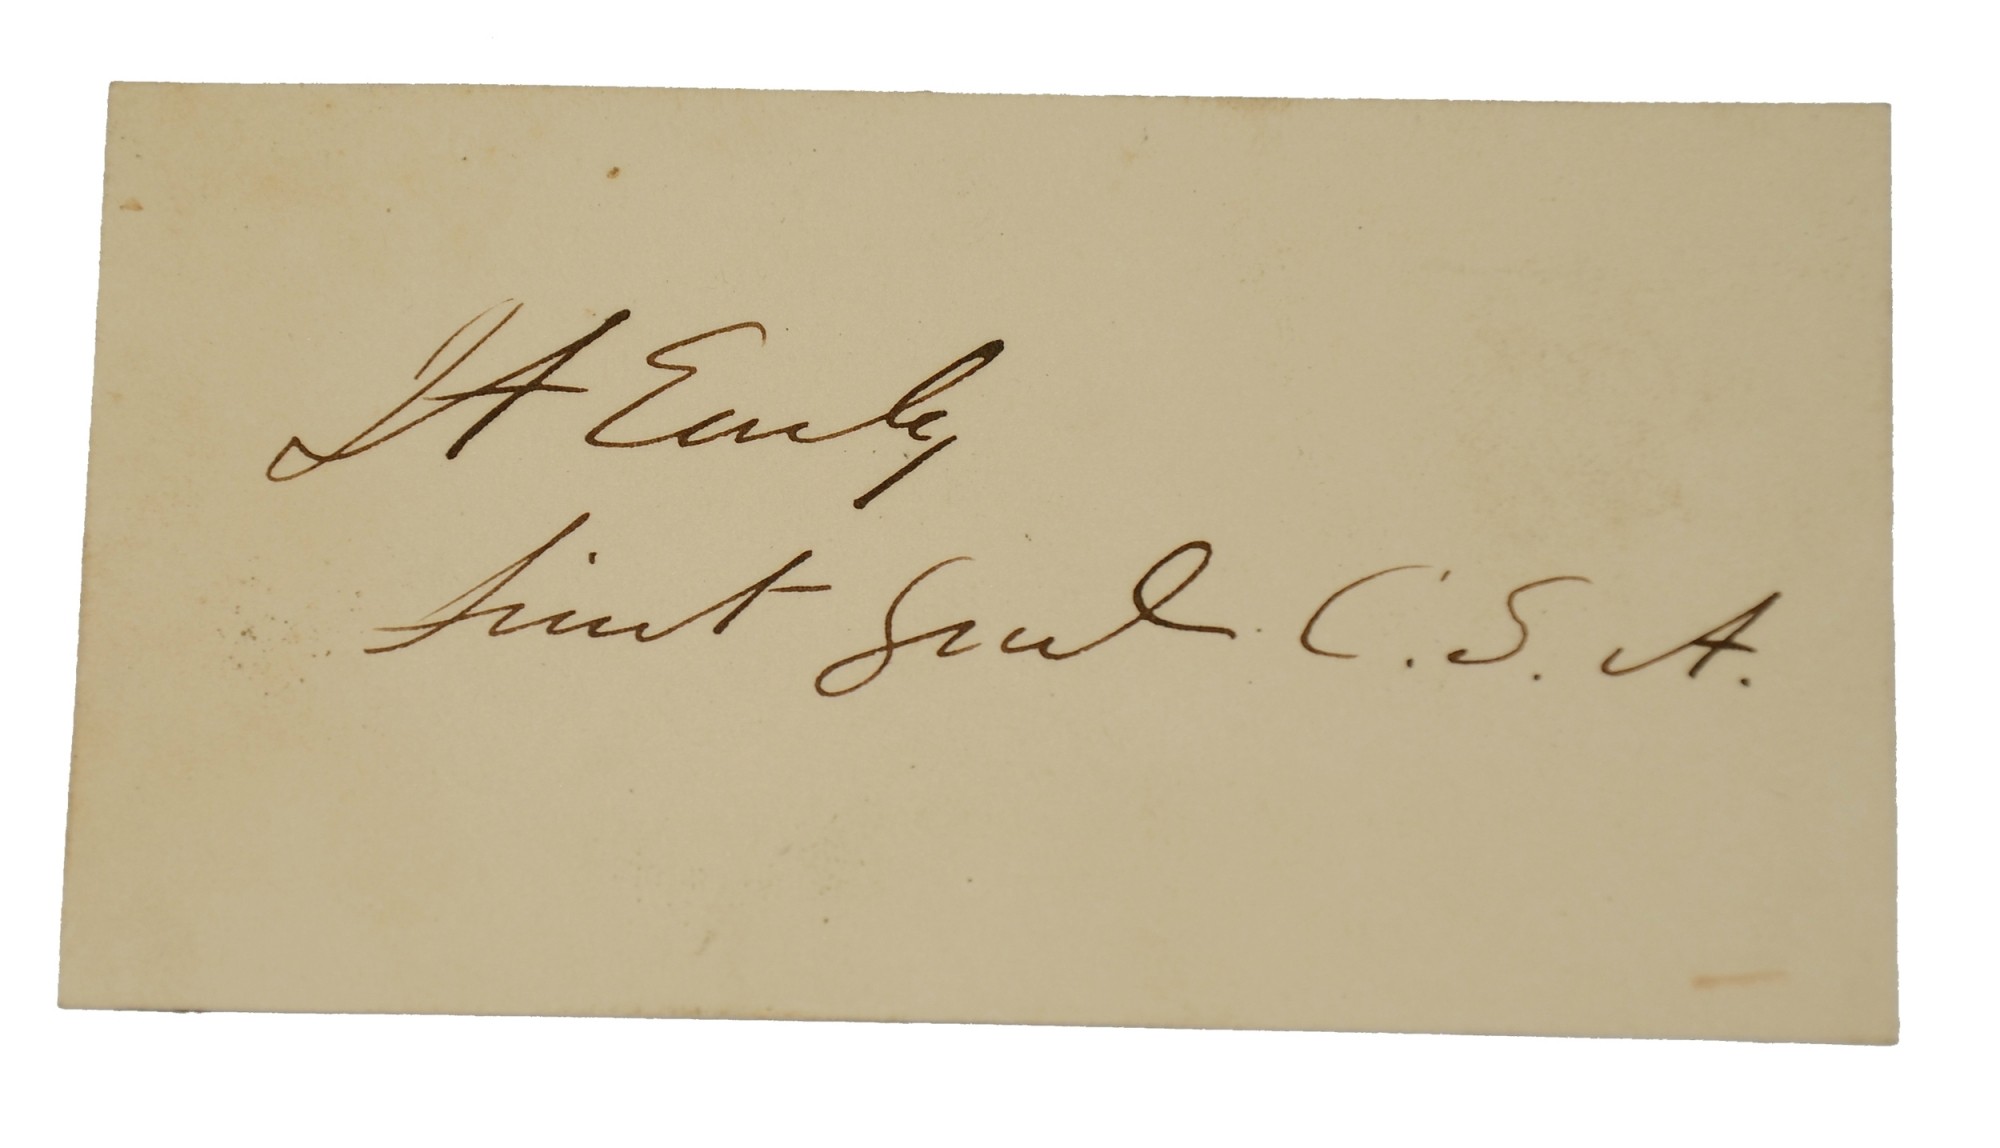 J A Early
Lieut Genl C. S. A.